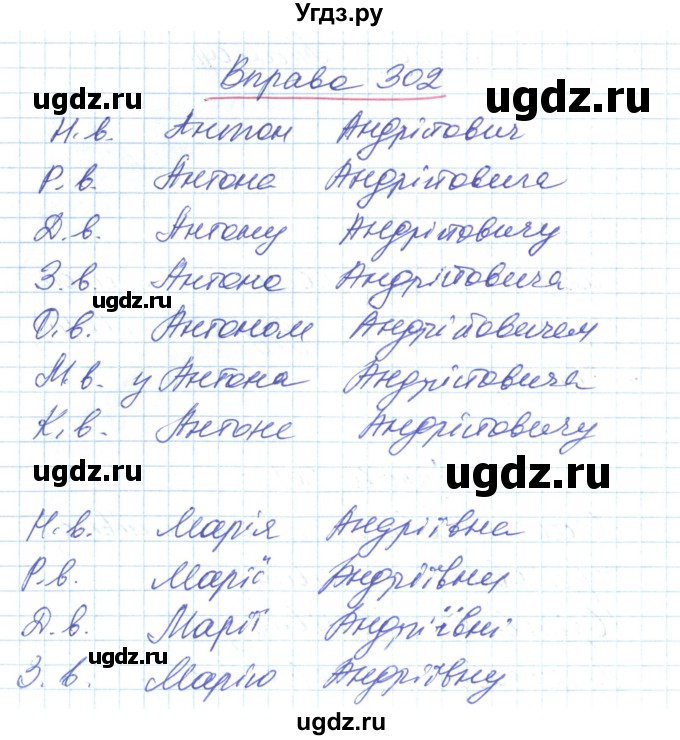 Угдз.ру
Вправа 302
ugdz.ru ugdz.ru
Н.в. Антон Андрійович
Р.в. Антона Андрійовича
Д.в. Антону Андрійовичу
З.в. Антона Андрійовича
ugdz.ru
О.в. Антоном Андрійовичем
М.в. у Антона Андрійовича
К.в. Антоне Андрійовичу
ugdz.ru ugdz.ru
Н.в. Марія Андріївна
Р.в. Марії Андріївни
Д.в. Марії Андріївні
ugdz.ru ugdz.ru
З.в. Марію Андріївну
ugdz.ru